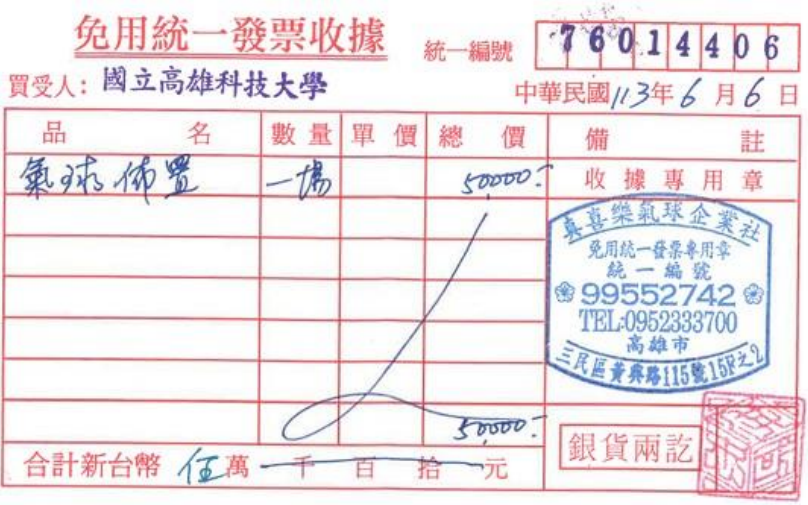 免用統一發票收據
統一編號 76014406
買受人：國立高雄科技大學
中華民國113年6月6日
品名 數量 單價 總價 備註
氣球佈置 一場 50000.- 收據專用章
真喜樂氣球企業社
免用統一發票專用章
統一編號
99552742
TEL:0952333700
高雄市
三民區黃興路115號15F之2
50000.-
合計新台幣 伍萬千百拾元
銀貨兩訖